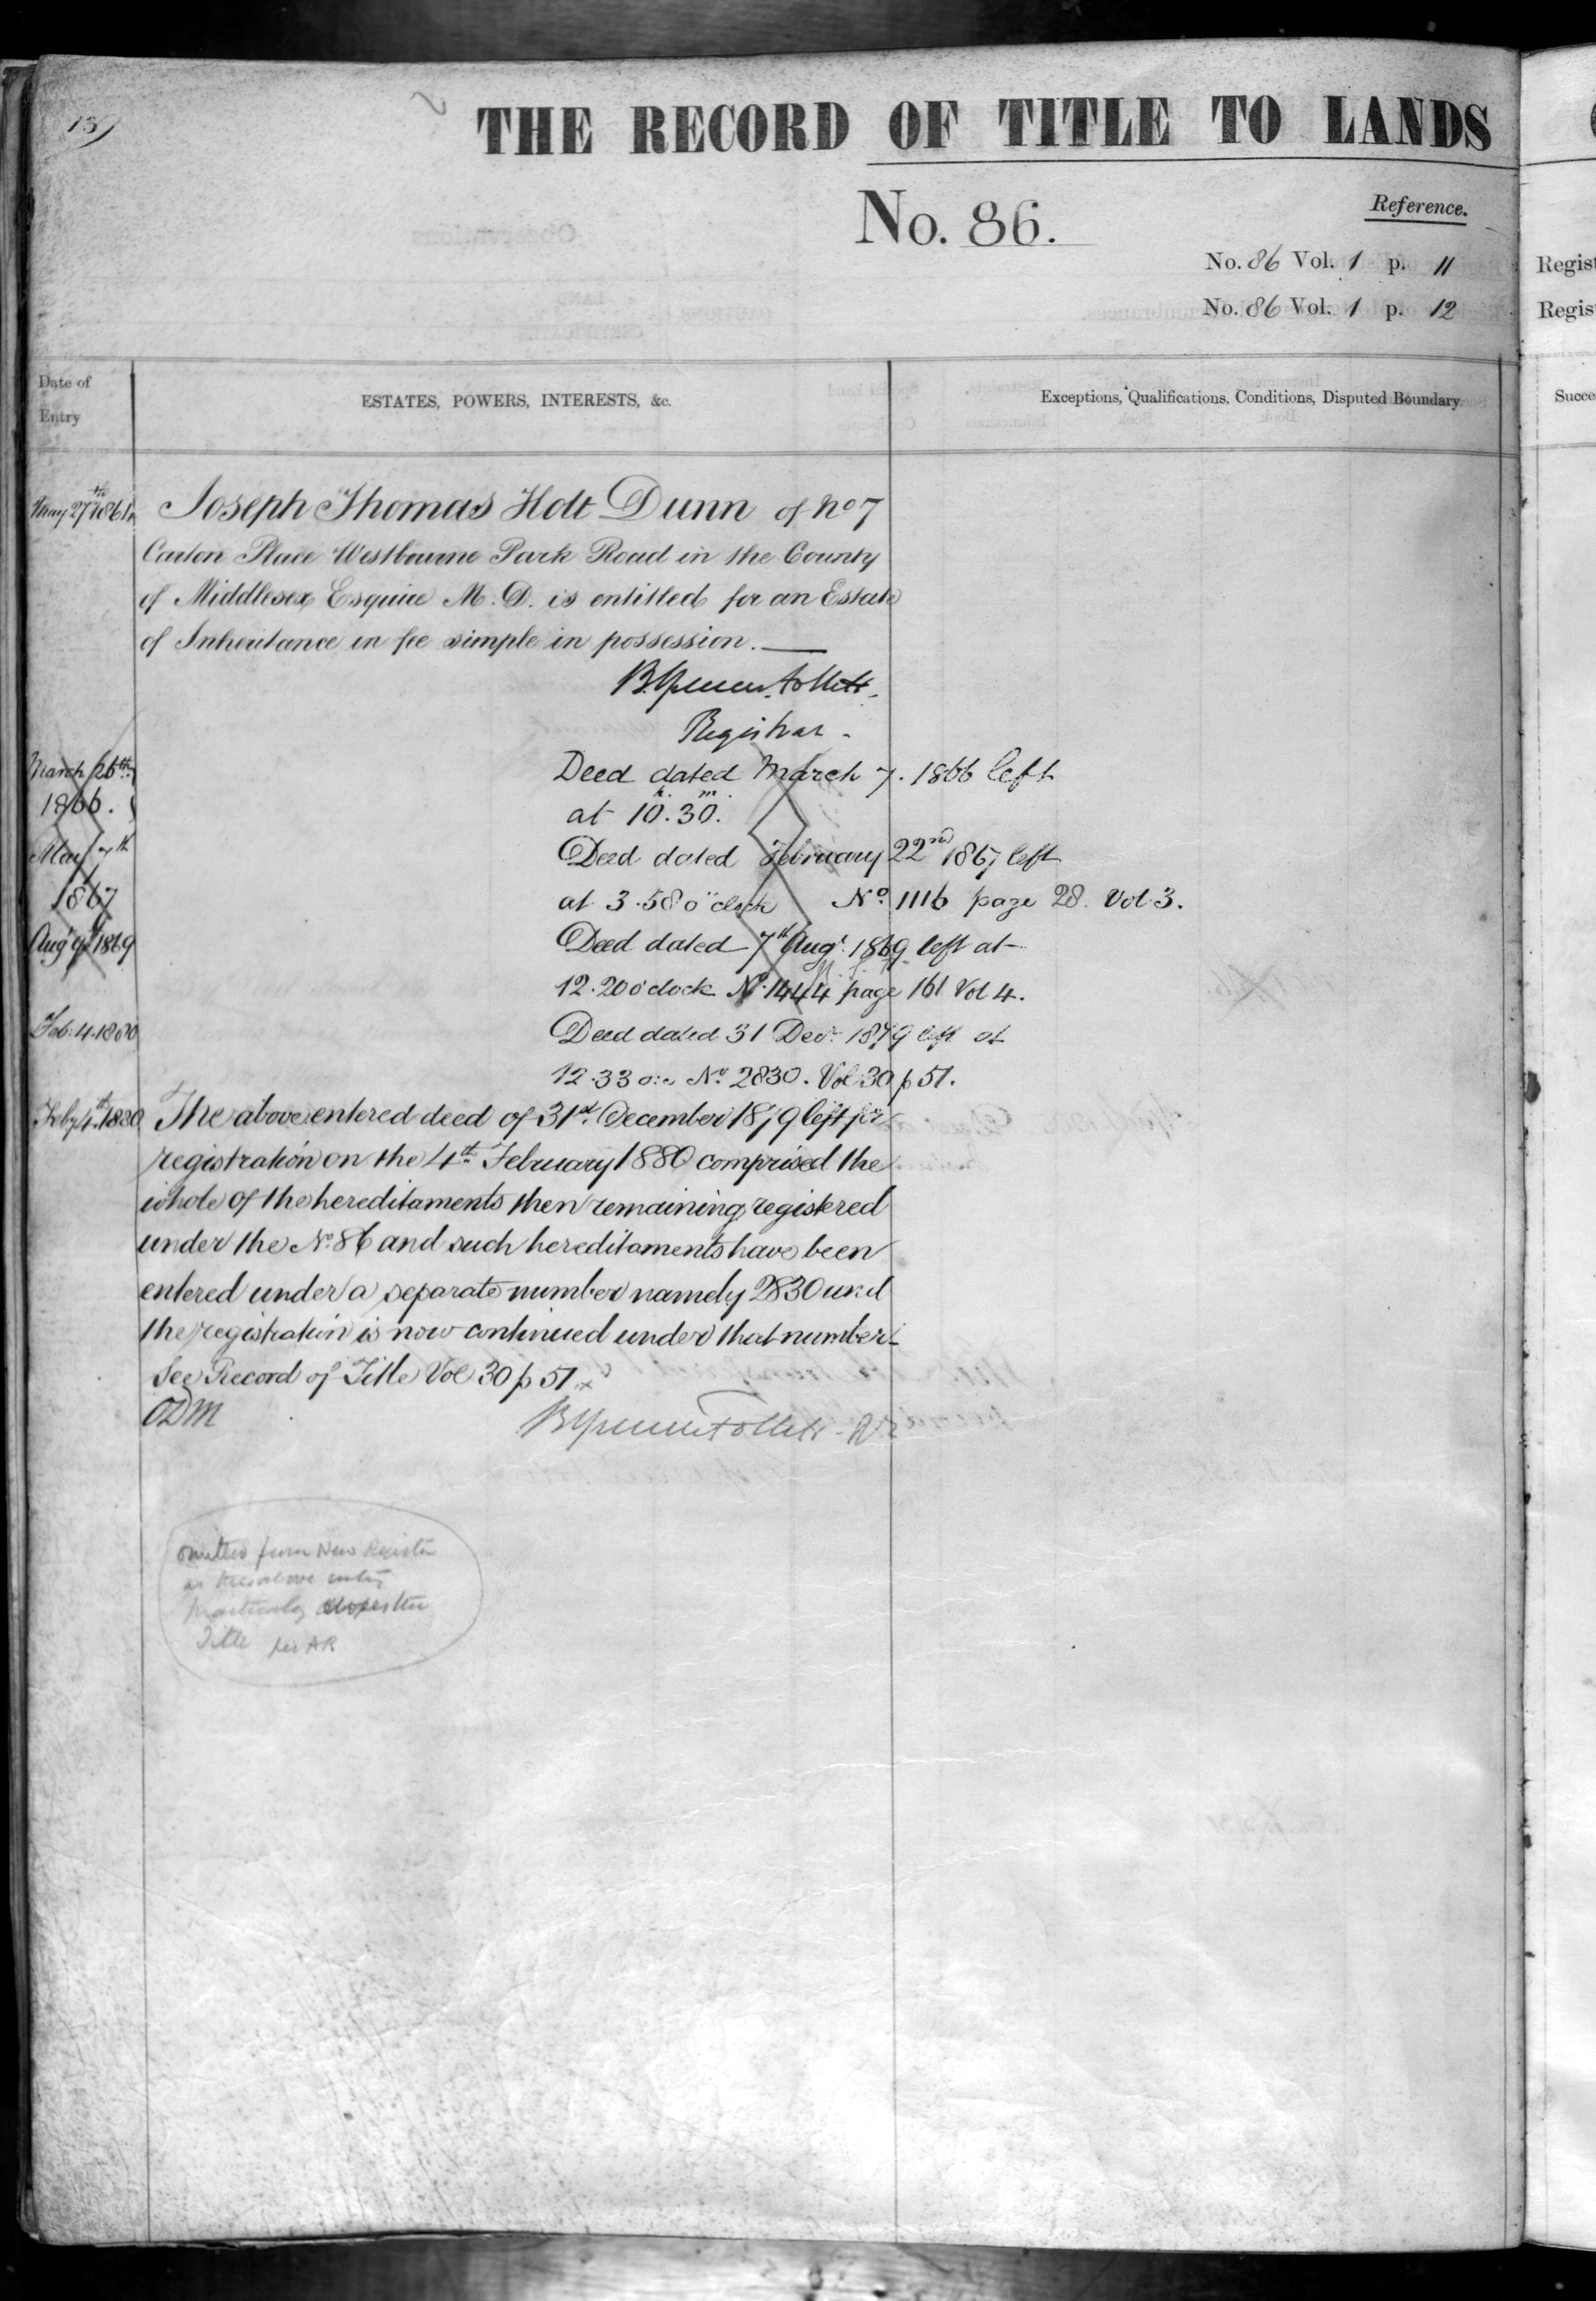 13
THE RECORD OF TITLE TO LANDS
No. 86.
Reference.
No. 86 Vol. 1 p. 11
No. 86 Vol. 1 p. 12
Regist
Regis
Date of Entry
ESTATES, POWERS, INTERESTS, &c.
Exceptions, Qualifications, Conditions, Disputed Boundary.
Succe
May 27th 1864 Joseph Thomas Holt Dunn of No 7
Place Westbourne Park Road in the County
of Middlesex Esquire M.D. is entitled for an Estate
of Inheritance in fee simple in possession.—
B. Spencer Follett.
Registrar.
March 26th 1866. Deed dated March 7. 1866 left
at 10h. 30m.
May 7th 1867 Deed dated February 22nd 1867 left
at 3.58 o'clock No. 1116 page 28. Vol. 3.
Augt 9th 1869 Deed dated 7th Augt. 1869 left at
12.20 o'clock No. 1444 page 161 Vol 4.
Feb. 4. 1880 Deed dated 31 Decr. 1879 left at
12.33 o:c No. 2830. Vol 30 p 51.
Feby 4th 1880 The above entered deed of 31st. December 1879 left for
registration on the 4th. February 1880 comprised the
whole of the hereditaments then remaining registered
under the No. 86 and such hereditaments have been
entered under a separate number namely 2830 and
the registration is now continued under that number
See Record of Title Vol 30 p 51.
ODM
B Spencer Follett
omitted from New Register
as the above entry
practically closes the
Title per AR